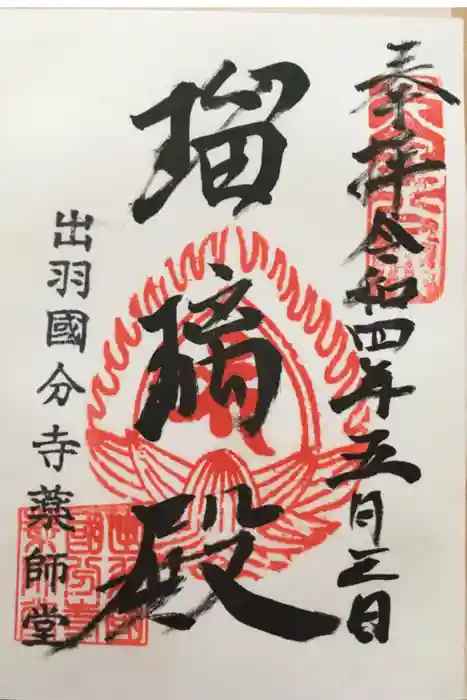 奉拝 令和四年五月三日
瑠璃殿
出羽國分寺薬師堂